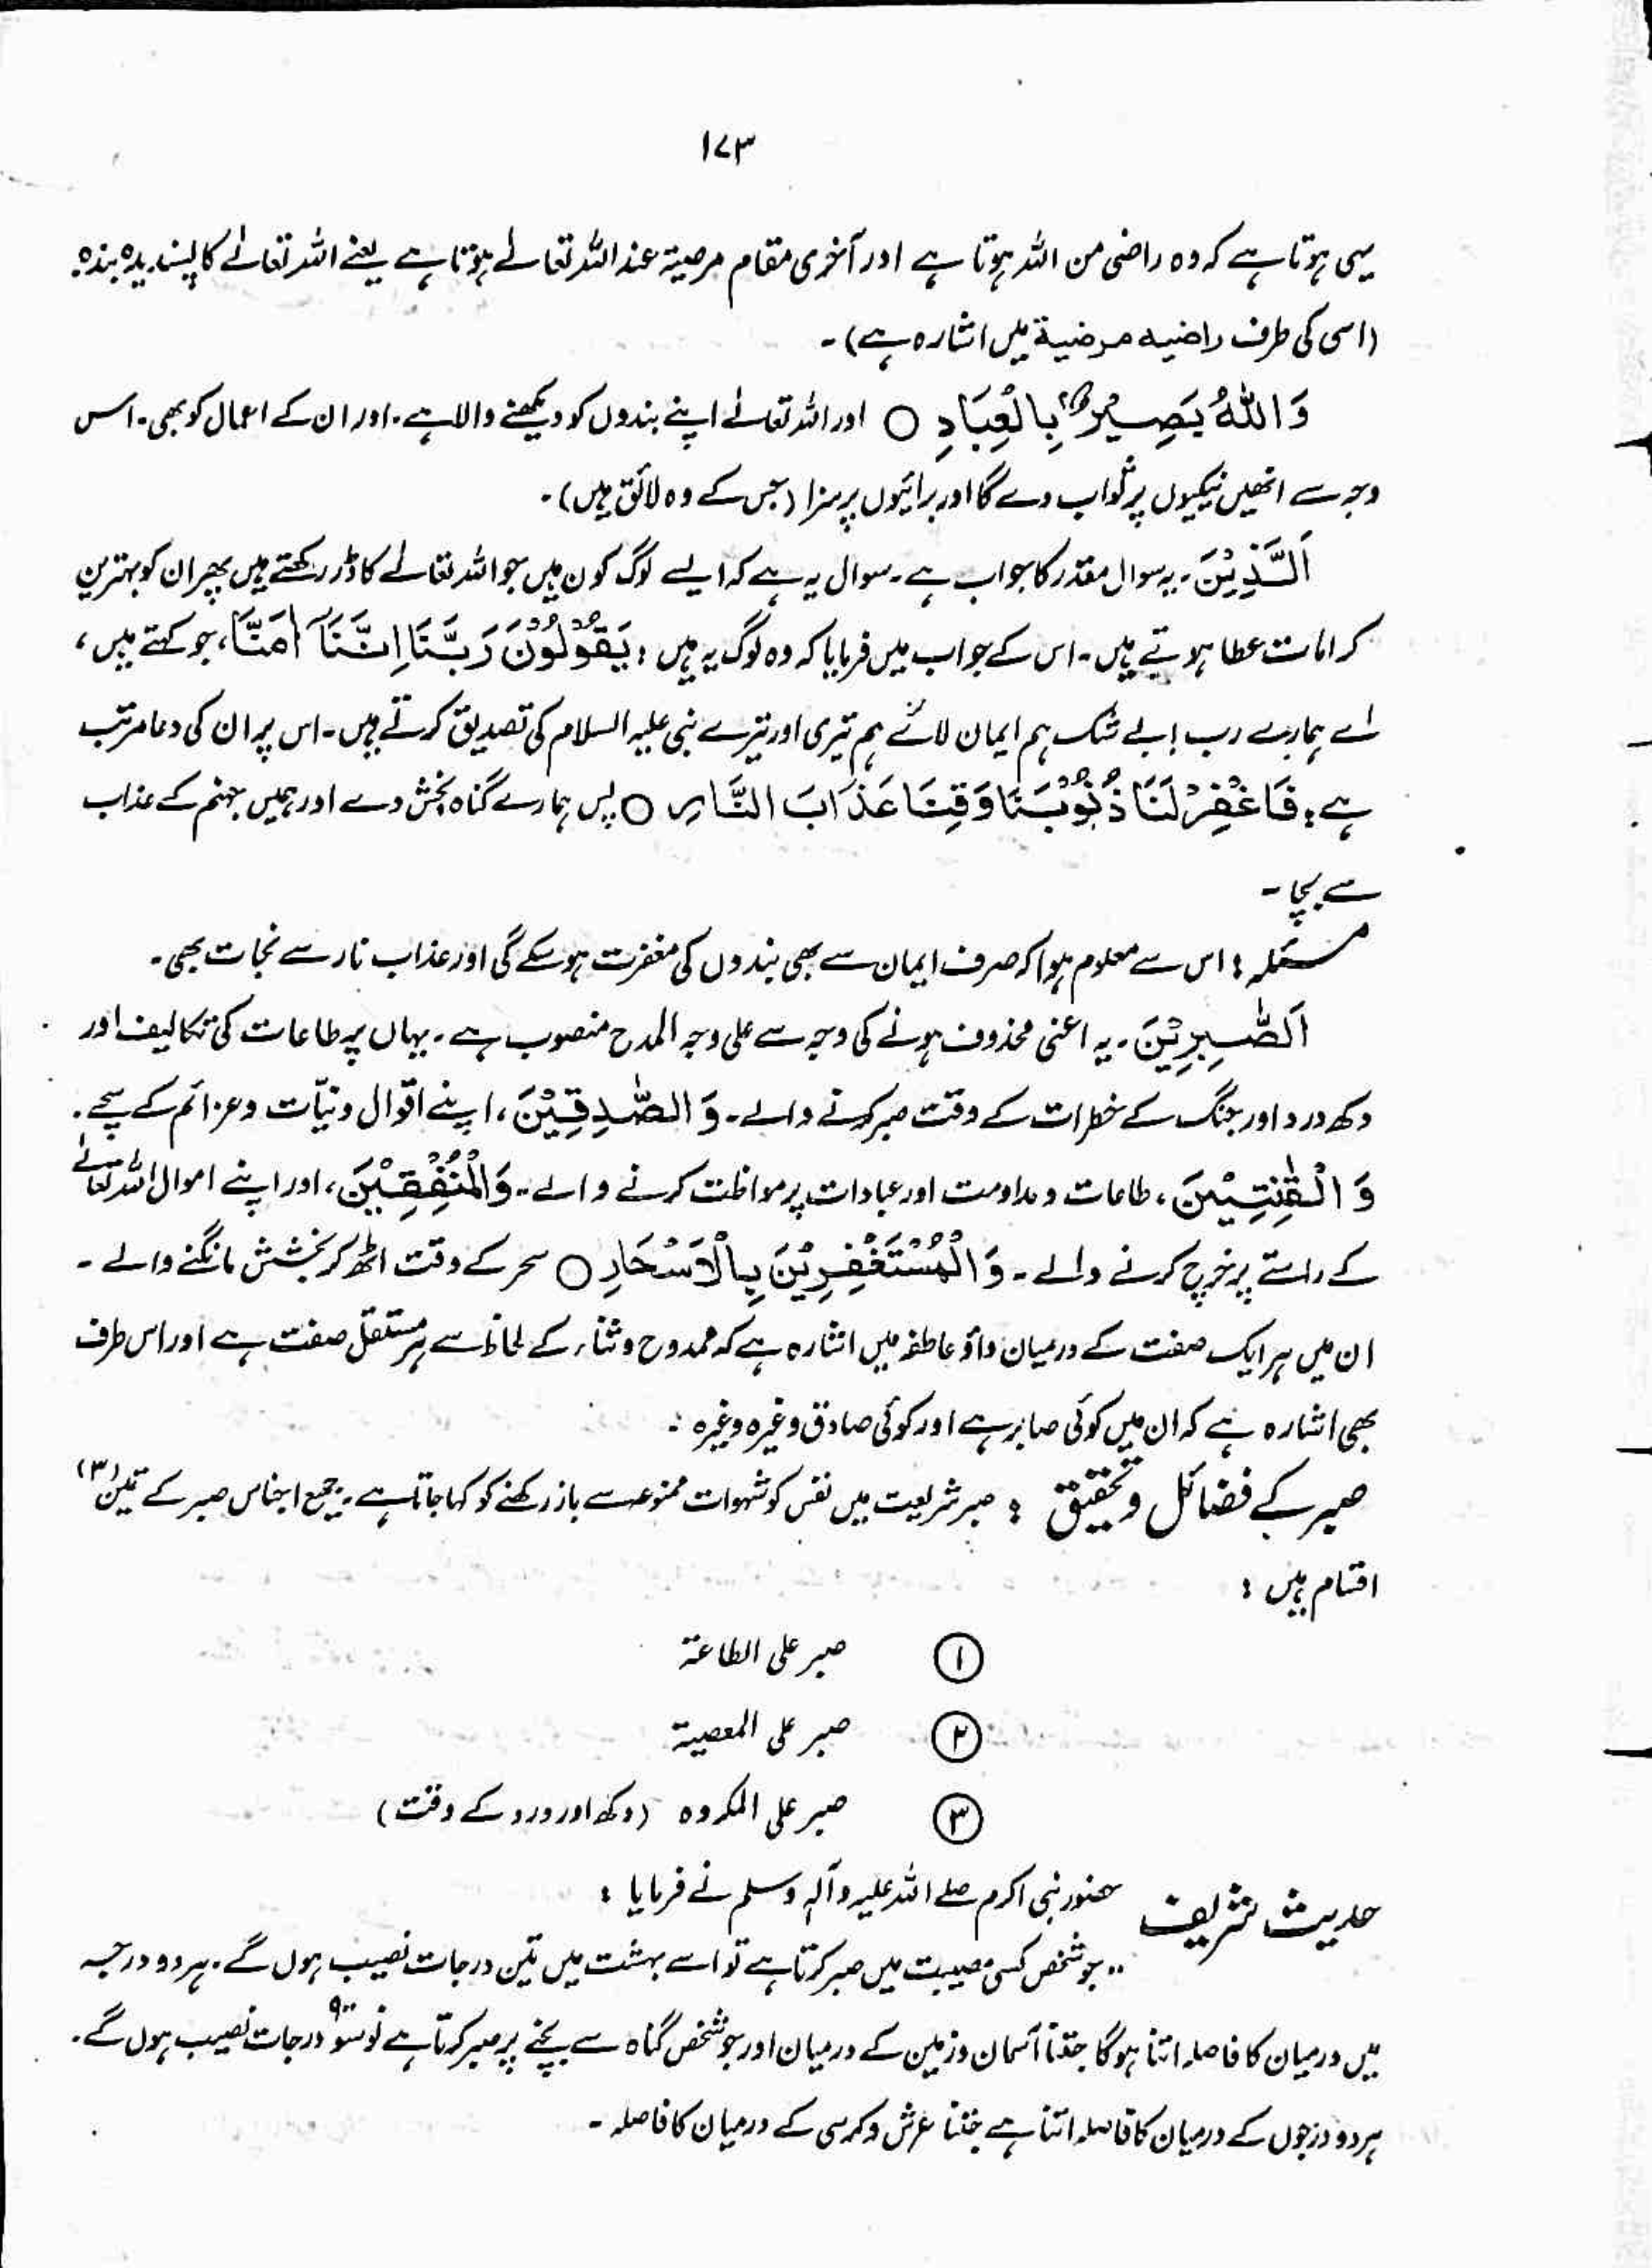 ۱۷۳
یہی ہوتا ہے کہ وہ راضی من اللہ ہوتا ہے اور آخری مقام مرضیۃ عند اللہ تعالےٰ ہوتا ہے یعنے اللہ تعالےٰ کا پسندیدہ بندہ۔
(اسی کی طرف راضیہ مرضیۃ میں اشارہ ہے)۔
وَاللّٰهُ بَصِيْرٌۢ بِالْعِبَادِ ○ اور اللہ تعالےٰ اپنے بندوں کو دیکھنے والا ہے۔ اور ان کے اعمال کو بھی۔ اس
وجہ سے انھیں نیکیوں پر ثواب دے گا اور برائیوں پر سزا (جس کے وہ لائق ہیں)۔
اَلَّذِيْنَ۔ یہ سوال مقدر کا جواب ہے۔ سوال یہ ہے کہ ایسے لوگ کون ہیں جو اللہ تعالےٰ کا ڈر رکھتے ہیں پھر ان کو بہترین
کرامات عطا ہوتے ہیں۔ اس کے جواب میں فرمایا کہ وہ لوگ یہ ہیں : يَقُوْلُوْنَ رَبَّنَآ اِنَّنَآ اٰمَنَّا، جو کہتے ہیں،
اے ہمارے رب! بے شک ہم ایمان لائے ہم تیری اور تیرے نبی علیہ السلام کی تصدیق کرتے ہیں۔ اس پر ان کی دعا مرتب
ہے : فَاغْفِرْلَنَا ذُنُوْبَنَا وَقِنَا عَذَابَ النَّارِ ○ پس ہمارے گناہ بخش دے اور ہمیں جہنم کے عذاب
سے بچا۔
مسئلہ : اس سے معلوم ہوا کہ صرف ایمان سے بھی بندوں کی مغفرت ہو سکے گی اور عذاب نار سے نجات بھی۔
اَلصّٰبِرِيْنَ۔ یہ اعنی محذوف ہونے کی وجہ سے علی وجہ المدح منصوب ہے۔ یہاں پر طاعات کی تکالیف اور
دکھ درد اور جنگ کے خطرات کے وقت صبر کرنے والے۔ وَالصّٰدِقِيْنَ، اپنے اقوال و نیّات و عزائم کے سچے۔
وَالْقٰنِتِيْنَ، طاعات و مداومت اور عبادات پر مواظبت کرنے والے۔ وَالْمُنْفِقِيْنَ، اور اپنے اموال اللہ تعالےٰ
کے راستے پر خرچ کرنے والے۔ وَالْمُسْتَغْفِرِيْنَ بِالْاَسْحَارِ ○ سحر کے وقت اٹھ کر بخشش مانگنے والے۔
ان میں ہر ایک صفت کے درمیان واؤ عاطفہ میں اشارہ ہے کہ ممدوح و ثناء کے لحاظ سے ہر مستقل صفت ہے اور اس طرف
بھی اشارہ ہے کہ ان میں کوئی صابر ہے اور کوئی صادق وغیرہ وغیرہ :
صبر کے فضائل و تحقیق : صبر شریعت میں نفس کو شہوات ممنوعہ سے باز رکھنے کو کہا جاتا ہے۔ جمیع اجناس صبر کے تین (۳)
اقسام ہیں :
۱ صبر علی الطاعۃ
۲ صبر علی المعصیۃ
۳ صبر علی المکروہ (دکھ اور درد کے وقت)
حدیث شریف حضور نبی اکرم صلے اللہ علیہ وآلہٖ وسلم نے فرمایا :
”جو شخص کسی مصیبت میں صبر کرتا ہے تو اسے بہشت میں تین درجات نصیب ہوں گے۔ ہر دو درجہ
میں درمیان کا فاصلہ اتنا ہو گا جتنا آسمان و زمین کے درمیان اور جو شخص گناہ سے بچنے پر صبر کرتا ہے نو سو ۹۰۰ درجات نصیب ہوں گے۔
ہر دو درجوں کے درمیان کا فاصلہ اتنا ہے جتنا عرش و کرسی کے درمیان کا فاصلہ۔